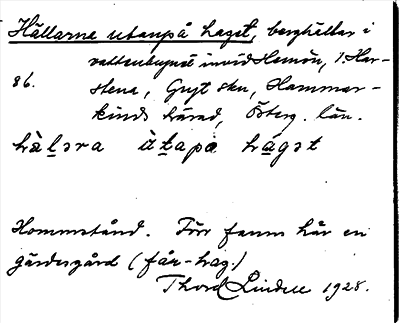 Hällarne utanpå haget, berghällar i
vattenbrynet invid Hemön, 1. Har-
86. stena, Gryt skn, Hammar-
kinds härad, Österg. län.
hàḻəra ùṯapa há̱gət
Hommstånd. Förr fanns här en
gärdesgård (får-hag.)
Thord Lindell 1928.